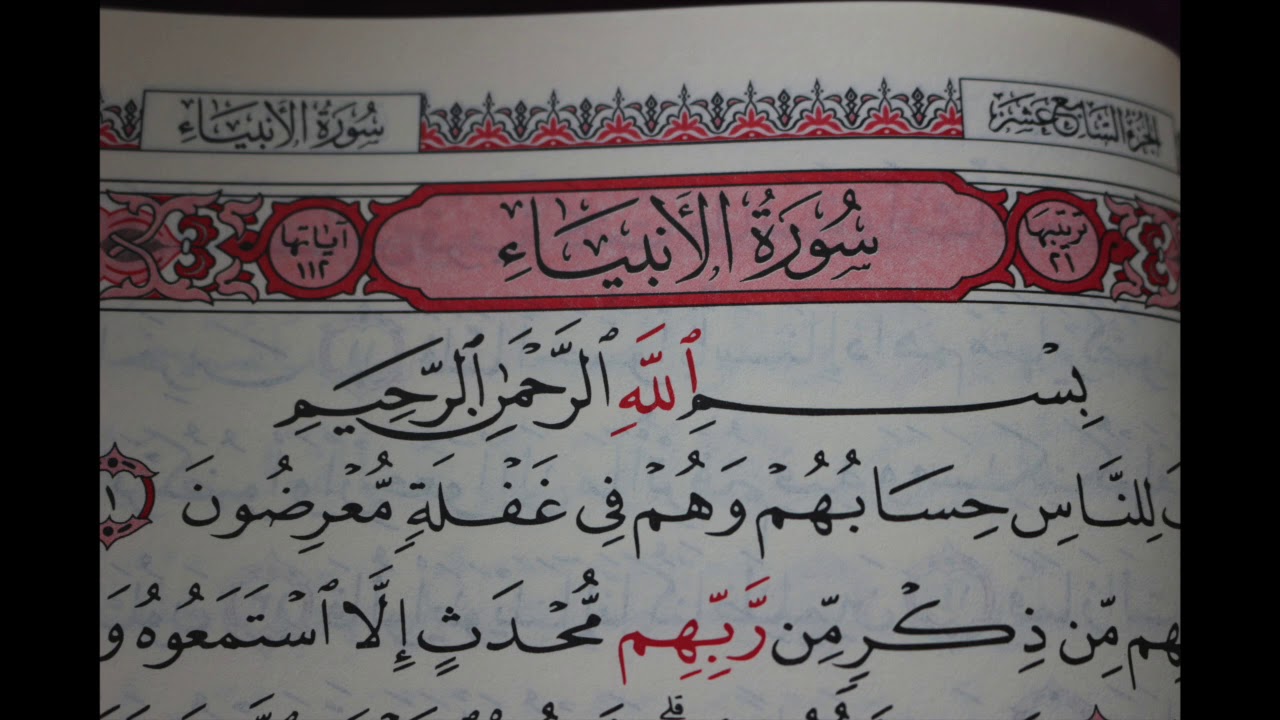 الجزء السابع عشر
سُورَةُ الأَنبِيَاءِ
ترتيبها
٢١
سُورَةُ الأَنبِيَاءِ
آياتها
١١٢
بِسْمِ ٱللَّهِ ٱلرَّحْمَٰنِ ٱلرَّحِيمِ
لِلنَّاسِ حِسَابُهُمْ وَهُمْ فِى غَفْلَةٍ مُّعْرِضُونَ ١
مِّن ذِكْرٍ مِّن رَّبِّهِم مُّحْدَثٍ إِلَّا ٱسْتَمَعُوهُ وَ